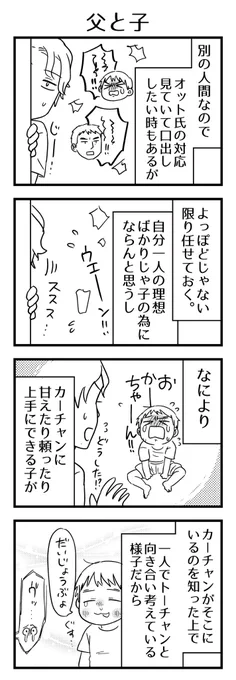 父と子
別の人間なので
オット氏の対応
見ていて口出し
したい時もあるが
じー
よっぽどじゃない
限り任せておく。
自分一人の理想
ばかりじゃ子の為に
ならんと思うし
ウェーン!!
ススス…
なにより
おかーちゃーん!!
どうした!?
カーチャンに
甘えたり頼ったり
上手にできる子が
カーチャンがそこに
いるのを知った上で
一人でトーチャンと
向き合い考えている
様子だから
だいじょうぶよ
すっ